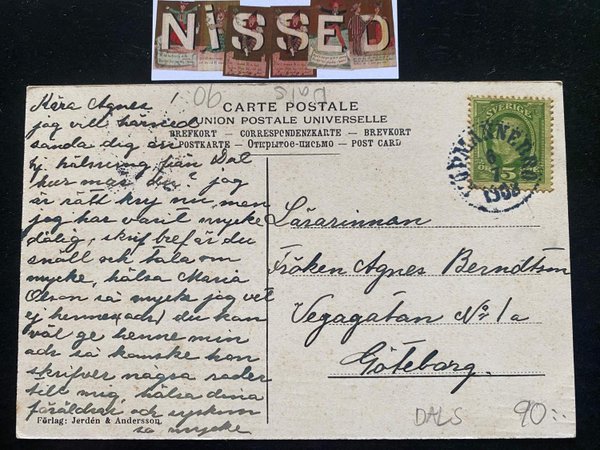 NiSSED
90 Dals
CARTE POSTALE
UNION POSTALE UNIVERSELLE
BREFKORT – CORRESPONDENZKARTE – BREVKORT
POSTKARTE – Открытое письмо – POST CARD
Kära Agnes!
jag vill härmed
sända dig en
hälsning från Dal
hur mår du? jag
är rätt kry nu, men
jag har varit mycke
dålig, skrif bref är du
snäll och tala om
mycke, hälsa Maria
Olson så mycke jag vet
ej hennes adr) du kan
väl ge henne min
adr så kanske hon
skrifver några rader
till mig, hälsa dina
föräldrar och syskon
så mycke
Förlag: Jerdén & Andersson.
SVERIGE
5
ÖRE
KÖPMANNEBRO
6
7
1902
Lärarinnan
Fröken Agnes Berndtson
Vegagatan No 1a
Göteborg.
DALS
90:-